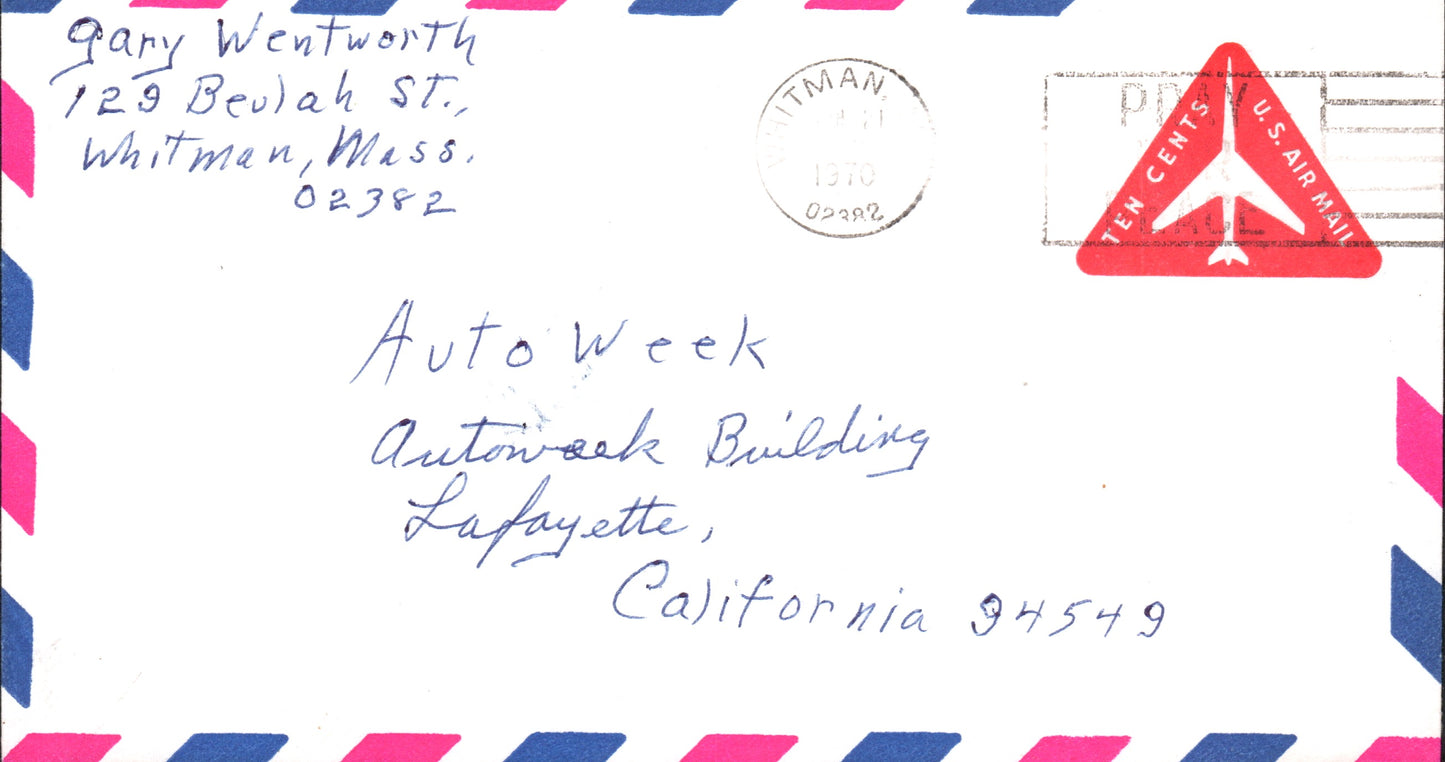 Gary Wentworth
129 Beulah St.,
Whitman, Mass.
02382
WHITMAN,
1970
02382
PRAY
PEACE
TEN CENTS
U.S. AIR MAIL
Auto Week
Autoweek Building
Lafayette,
California 94549